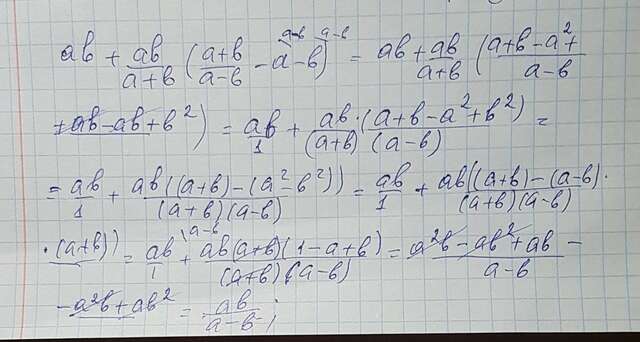 ab + ab/(a+b) ((a+b)/(a-b) - a-b) = ab + ab/(a+b) ((a+b-a²+
+ab-ab+b²)/(a-b)) = ab/1 + ab·(a+b-a²+b²)/((a+b)(a-b)) =
= ab/1 + ab((a+b)-(a²-b²))/((a+b)(a-b)) = ab/1 + ab((a+b)-(a-b)·
·(a+b))/((a+b)(a-b)) = ab/1 + ab(a+b)(1-a+b)/((a+b)(a-b)) = (a²b-ab²+ab-
-a²b+ab²)/(a-b) = ab/(a-b);